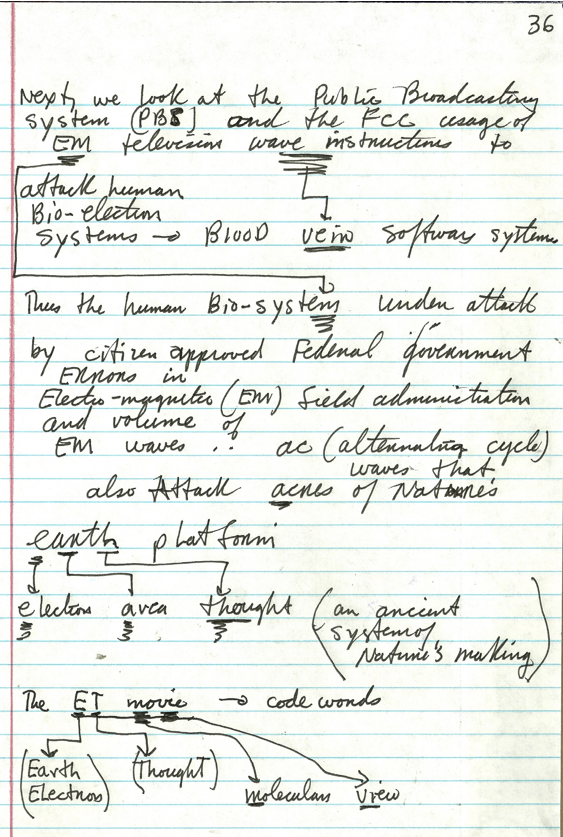 36
Next, we look at the Public Broadcasting
system (PBS) and the FCC usage of
EM television wave instructions to
attack human
Bio-election
systems → BlooD vein software systems
Thus the human Bio-system under attack
by citizen approved Federal government
ERRORS in
Electro-magnetic (EM) field administration
and volume of
EM waves ∴ ac (alternating cycle)
waves that
also Attack acres of Nature's
earth platform
electron area thought (an ancient
system of
Nature's making)
The ET movie → code words
(Earth
Electrons) (Thought) moleculars view